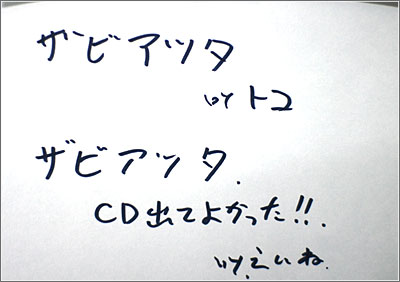 ザビアツタ
by トコ
ザビアツタ.
CD出てよかった!!.
by.えいね.